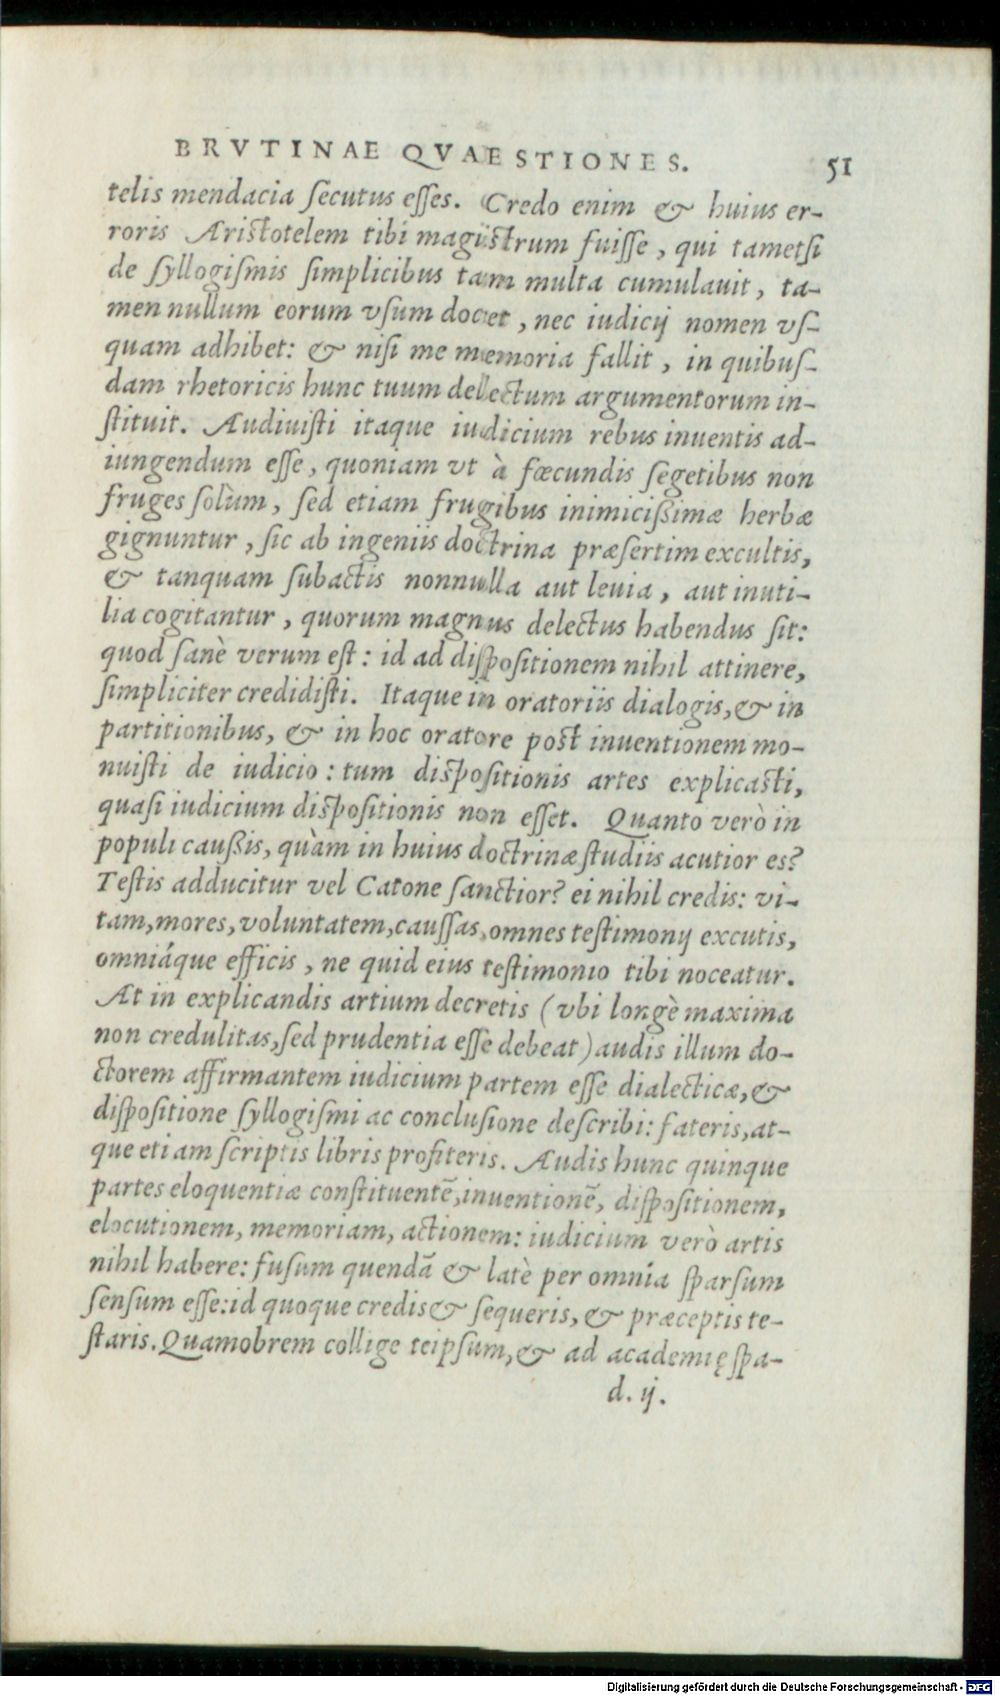 BRVTINAE QVAESTIONES. 51
telis mendacia ſecutus eſſes. Credo enim & huius er-
roris Ariſtotelem tibi magiſtrum fuiſſe, qui tametſi
de ſyllogiſmis ſimplicibus tam multa cumulauit, ta-
men nullum eorum vſum docet, nec iudicij nomen vſ-
quam adhibet: & niſi me memoria fallit, in quibuſ-
dam rhetoricis hunc tuum delectum argumentorum in-
ſtituit. Audiuiſti itaque iudicium rebus inuentis ad-
iungendum eſſe, quoniam vt à fœcundis ſegetibus non
fruges ſolùm, ſed etiam frugibus inimicißimæ herbæ
gignuntur, ſic ab ingeniis doctrina præſertim excultis,
& tanquam ſubactis nonnulla aut leuia, aut inuti-
lia cogitantur, quorum magnus delectus habendus ſit:
quod ſanè verum eſt: id ad diſpoſitionem nihil attinere,
ſimpliciter credidiſti. Itaque in oratoriis dialogis, & in
partitionibus, & in hoc oratore poſt inuentionem mo-
nuiſti de iudicio: tum diſpoſitionis artes explicaſti,
quaſi iudicium diſpoſitionis non eſſet. Quanto verò in
populi caußis, quàm in huius doctrinæ ſtudiis acutior es?
Teſtis adducitur vel Catone ſanctior? ei nihil credis: vi-
tam, mores, voluntatem, cauſſas, omnes teſtimonij excutis,
omniáque efficis, ne quid eius teſtimonio tibi noceatur.
At in explicandis artium decretis (vbi longè maxima
non credulitas, ſed prudentia eſſe debeat) audis illum do-
ctorem affirmantem iudicium partem eſſe dialecticæ, &
diſpoſitione ſyllogiſmi ac concluſione deſcribi: fateris, at-
que etiam ſcriptis libris profiteris. Audis hunc quinque
partes eloquentiæ conſtituentē, inuentionē, diſpoſitionem,
elocutionem, memoriam, actionem: iudicium verò artis
nihil habere: fuſum quendā & latè per omnia ſparſum
ſenſum eſſe: id quoque credis & ſequeris, & præceptis te-
ſtaris. Quamobrem collige teipſum, & ad academię ſpa-
d. ij.
Digitalisierung gefördert durch die Deutsche Forschungsgemeinschaft - DFG